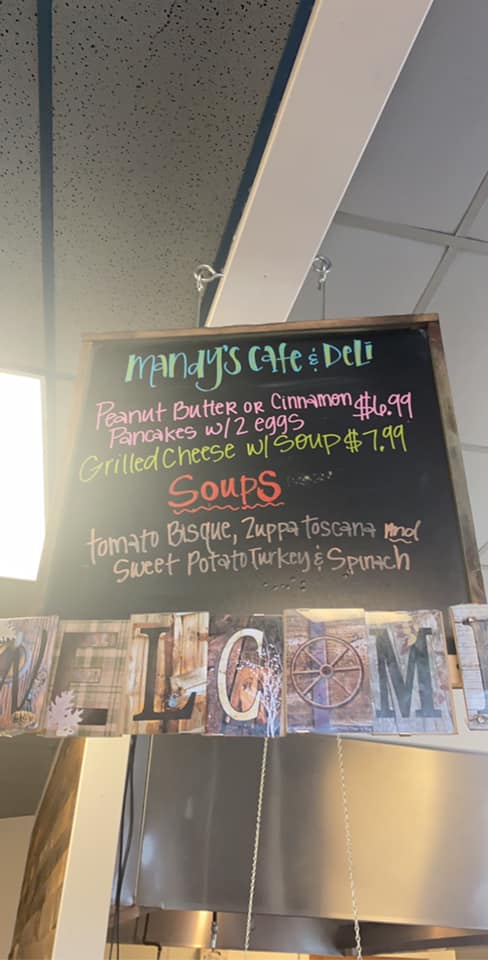 Mandy's Cafe & Deli
Peanut Butter or Cinnamon $6.99
Pancakes w/ 2 eggs
Grilled Cheese w/ Soup $7.99
Soups
tomato Bisque, Zuppa Toscana and
Sweet Potato Turkey & Spinach
WELCOM